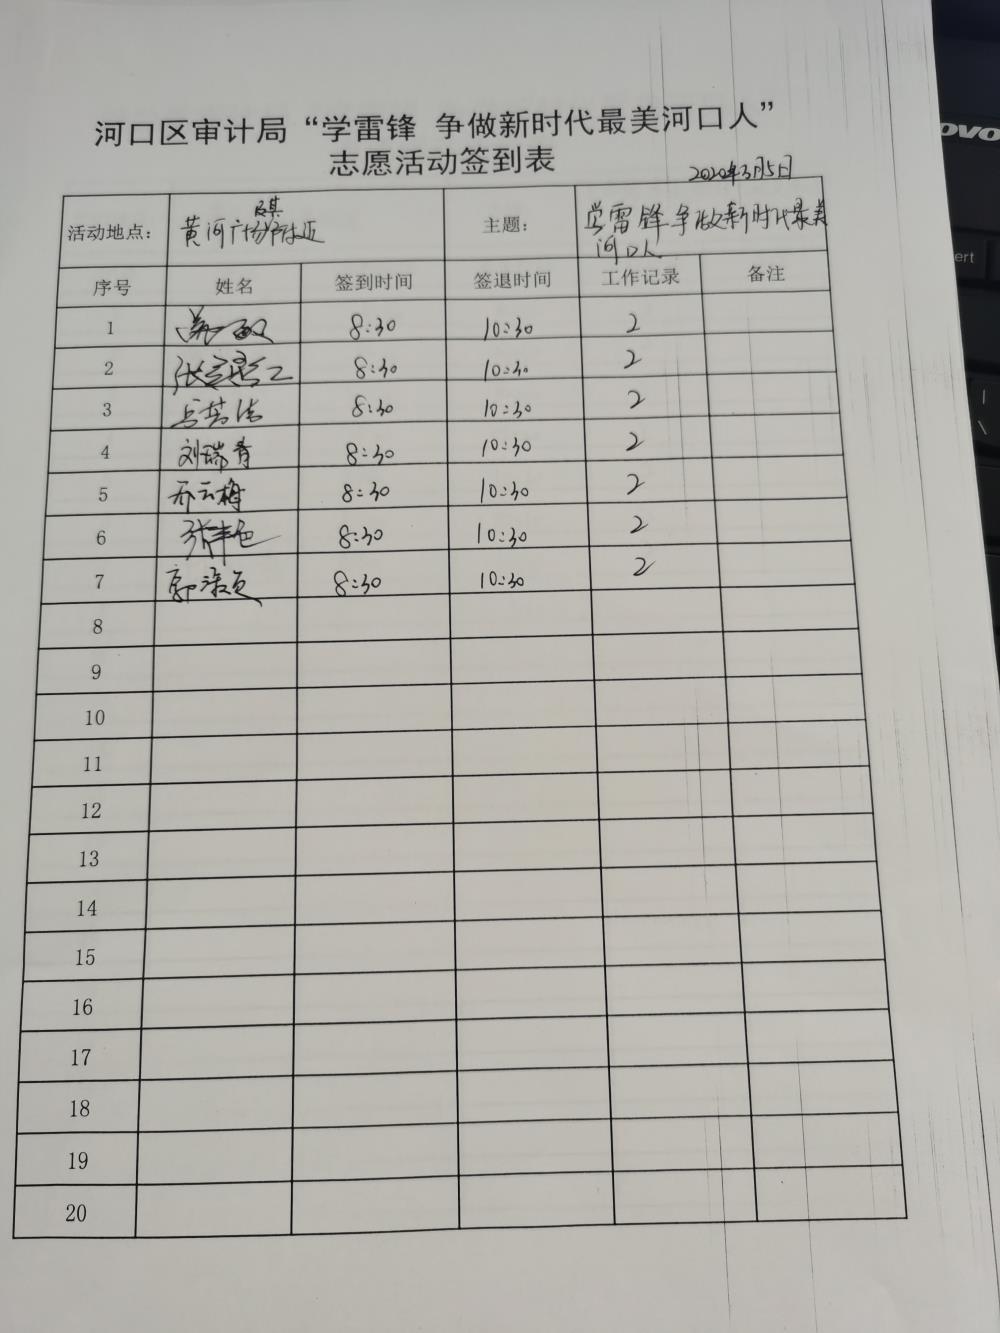 河口区审计局“学雷锋 争做新时代最美河口人”
志愿活动签到表
2020年3月5日
活动地点： 黄河广场及其附近 主题： 学雷锋 争做新时代最美
河口人
序号 姓名 签到时间 签退时间 工作记录 备注
1 8:30 10:30 2
2 8:30 10:30 2
3 8:30 10:30 2
4 刘瑞青 8:30 10:30 2
5 乔云梅 8:30 10:30 2
6 8:30 10:30 2
7 郭 8:30 10:30 2
8
9
10
11
12
13
14
15
16
17
18
19
20